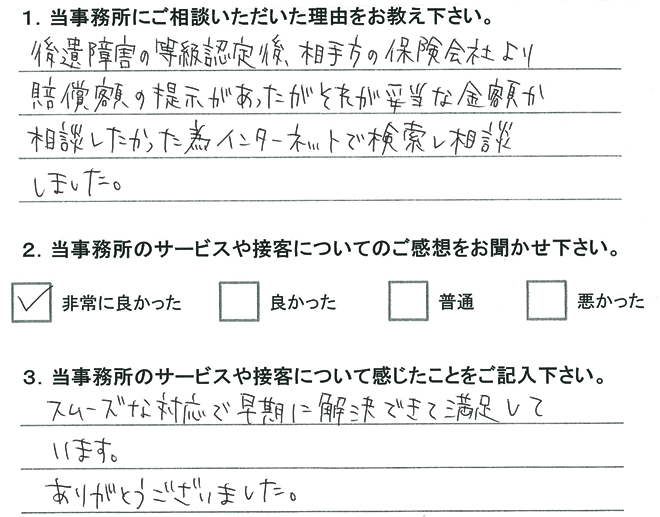 1．当事務所にご相談いただいた理由をお教え下さい。
後遺障害の等級認定後、相手方の保険会社より
賠償額の提示があったがそれが妥当な金額か
相談したかった為インターネットで検索し相談
しました。
2．当事務所のサービスや接客についてのご感想をお聞かせ下さい。
非常に良かった 良かった 普通 悪かった
3．当事務所のサービスや接客について感じたことをご記入下さい。
スムーズな対応で早期に解決できて満足して
います。
ありがとうございました。